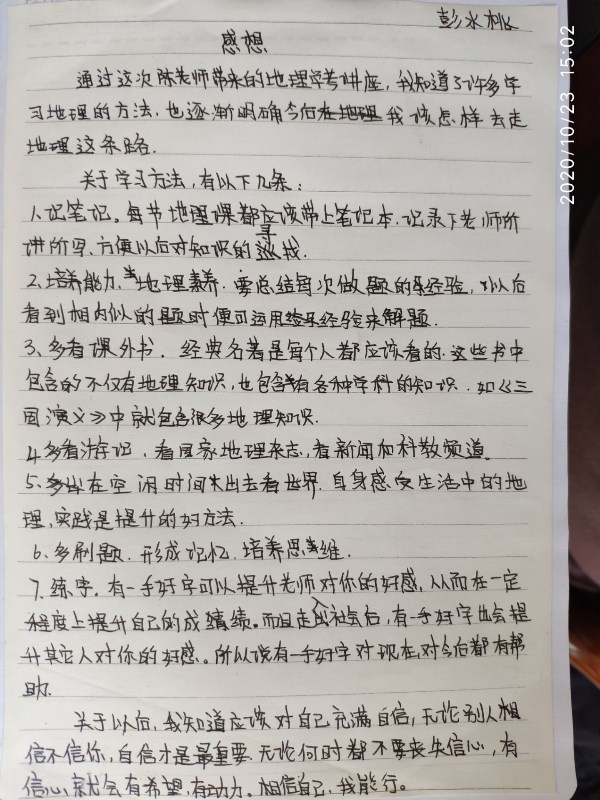 彭水桃
2020/10/23 15:02
感想
通过这次陈老师带来的地理学考讲座,我知道了许多学
习地理的方法,也逐渐明确今后我该怎样去走
地理这条路.
关于学习方法,有以下几条:
1.记笔记.每节地理课都应该带上笔记本.记录下老师所
讲所写.方便以后对知识的寻找.
2.培养能力,地理素养.要总结每次做题的经验,以后
看到相似的题时便可运用经验来解题.
3、多看课外书.经典名著是每个人都应该看的.这些书中
包含的不仅有地理知识,也包含有各种学科的知识.如《三
国演义》中就包含很多地理知识.
4.多看游记.看国家地理杂志,看新闻和科教频道.
5.多在空闲时间出去看世界.自身感受生活中的地
理,实践是提升的好方法.
6.多刷题.形成记忆.培养思维.
7.练字.有一手好字可以提升老师对你的好感,从而在一定
程度上提升自己的成绩.而且走入社会后,有一手好字也会提
升其它人对你的好感。所以说有一手好字对现在,对今后都有帮
助.
关于以后,我知道应该对自己充满自信,无论别人相
信不信你,自信才是最重要.无论何时都不要丧失信心,有
信心,就会有希望,有动力.相信自己,我能行。